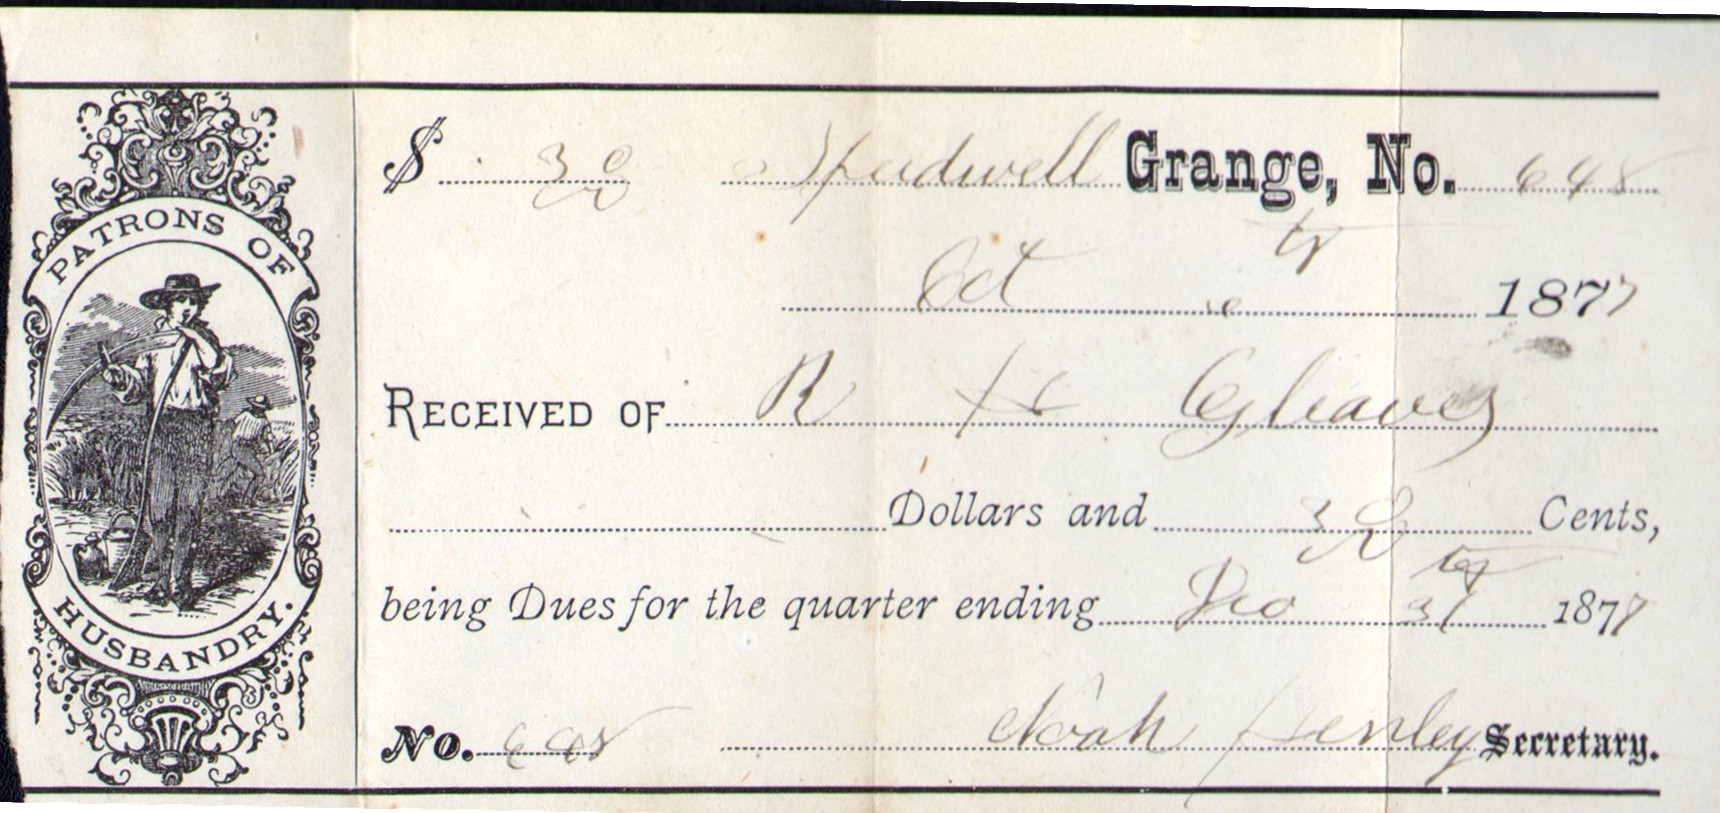 PATRONS OF
HUSBANDRY.
$ 38 Spedwell Grange, No. 648
Oct 1877
RECEIVED OF R H Cgleaves
Dollars and 38 Cents,
being Dues for the quarter ending Dec 31 1877
No. 648 Noah Henley Secretary.